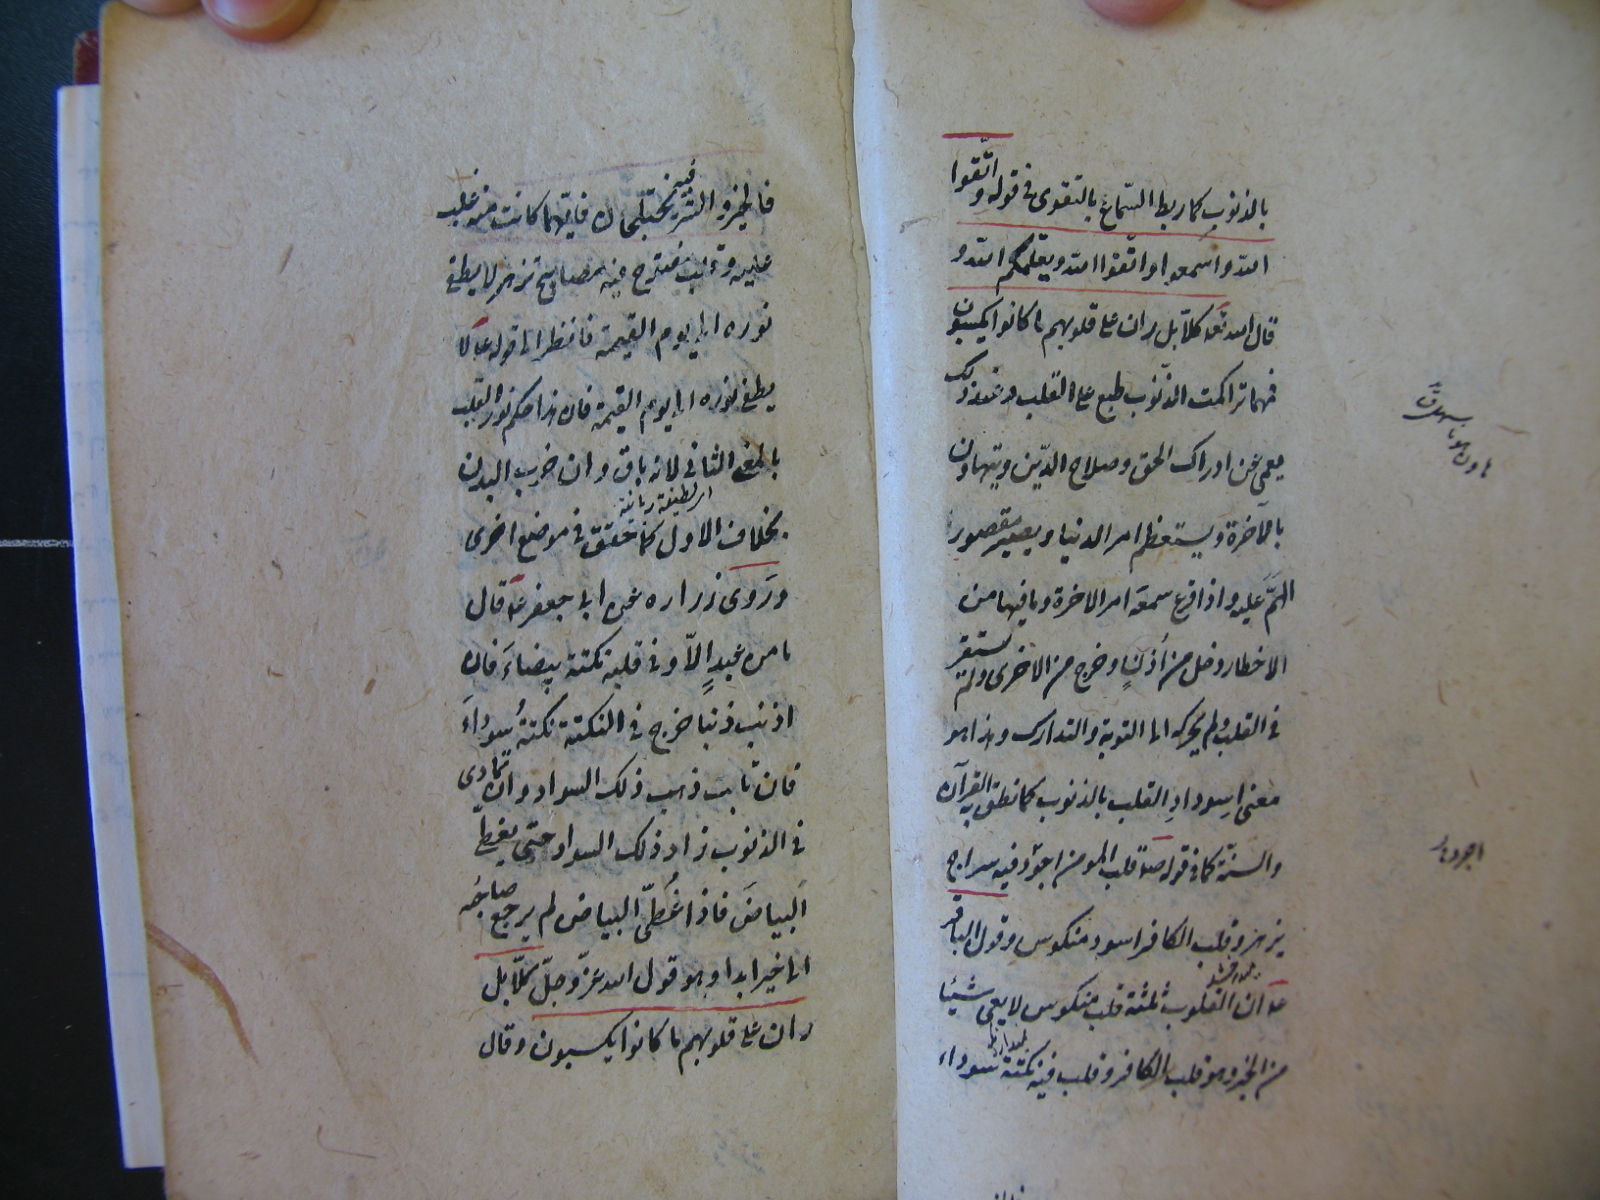 بالذنوب كما ربط السماع بالتقوى فى قوله و اتّقوا
الله و اسمعوا و اتّقوا الله و يعلّمكم الله و
قال الله تعه كلّا بل ران على قلوبهم ما كانوا يكسبون
فمهما تراكمت الذّنوب طبع على القلب و عند ذلك
يعمى عن ادراك الحق و صلاح الدّين و يتهاون
بالآخرة و يستعظم امر الدنيا و يصير مقصور
الهمّ عليه و اذا قرع سمعه امر الاخرة و ما فيها من
الاخطار دخل من أذنٍ و خرج من الاخرى و لم يستقر
فى القلب و لم يحركه الى التوبة و التدارك و هذا هو
معنى اسوداد القلب بالذنوب كما نطق به القرآن
و السنّة كما فى قوله صه قلب المومن اجرد فيه سراج
يزهر و قلب الكافر اسود منكوس و قول الباقر
عه ان القلوب ثلثة قلب منكوس لا يعى شيئا
من الخير و هو قلب الكافر و قلب فيه نكتة سوداء
اجرد
فالخير و الشر فيه يختلجان فايّهما كانت منه غلب
عليه و قلب مفتوح فيه مصابيح تزهر لا يطفى
نوره الى يوم القيمة فانظر الى قوله عه لا
يطفى نوره الى يوم القيمة فان هذا حكم نور القلب
بالمعنى الثانى لانه باق و ان خرب البدن
بخلاف الاول كما تحقق فى موضع اخرى
و رَوى زراره عن ابى جعفر عه قال
ما من عبدٍ الّا و فى قلبه نكتة بيضاءَ فان
اذنب ذنبا خرج فى النكتة نكتة سُوداءَ
فان تاب ذهب ذلك السواد و ان تمادى
فى الذنوب زاد ذلك السواد حتى يغطّى
البياضَ فاذا غُطّىَ البياض لم يرجع صاحبُه
الى خير ابدا و هو قول الله عزّ و جلّ كلّا بل
ران على قلوبهم ما كانوا يكسبون و قال